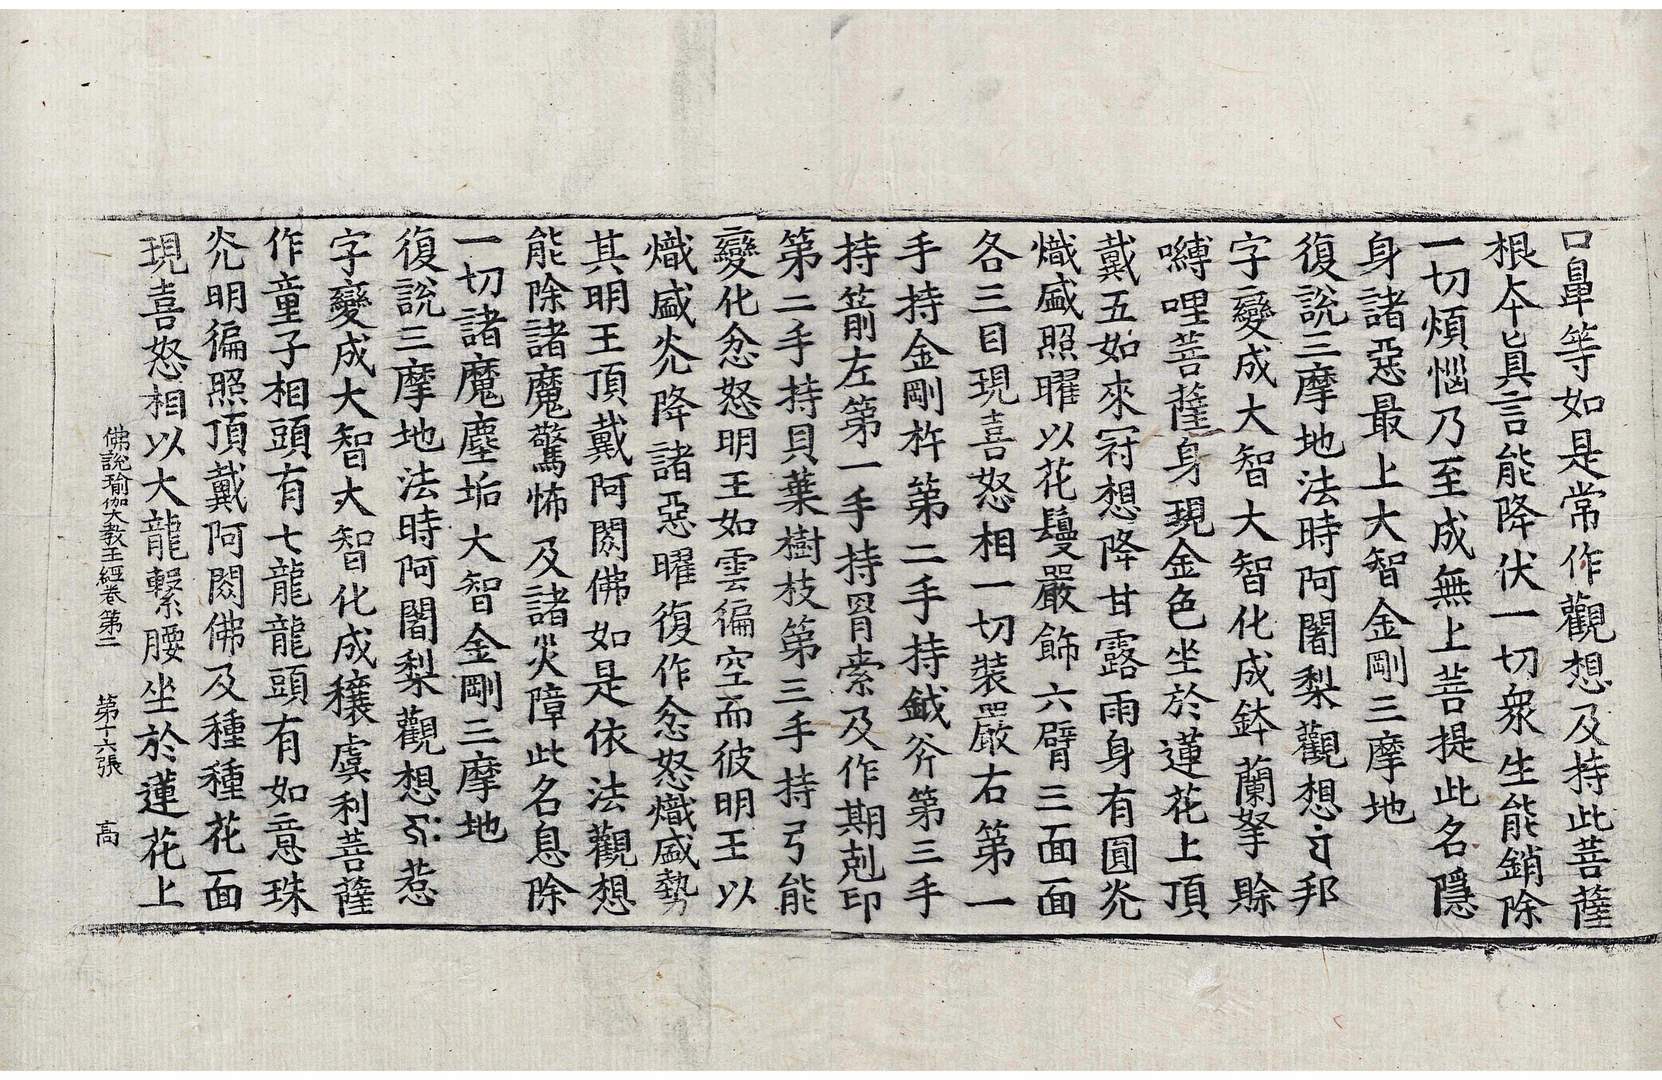 口鼻等如是常作觀想及持此菩薩
根夲眞言能降伏一切衆生能銷除
一切煩惱乃至成無上菩提此名隱
身諸惡最上大智金剛三摩地
復說三摩地法時阿闍梨觀想邦
字變成大智大智化成鉢蘭拏賒
嚩哩菩薩身現金色坐於蓮花上頂
戴五如來冠想降甘露雨身有圓光
熾盛照曜以花鬘嚴飾六臂三面面
各三目現喜怒相一切裝嚴右第一
手持金剛杵第二手持鉞斧第三手
持箭左第一手持罥索及作期剋印
第二手持貝葉樹枝第三手持弓能
變化忿怒明王如雲徧空而彼明王以
熾盛光降諸惡曜復作忿怒熾盛勢
其明王頂戴阿閦佛如是依法觀想
能除諸魔驚怖及諸災障此名息除
一切諸魔塵垢大智金剛三摩地
復說三摩地法時阿闍梨觀想惹
字變成大智大智化成穰虞利菩薩
作童子相頭有七龍龍頭有如意珠
光明徧照頂戴阿閦佛及種種花面
現喜怒相以大龍繫腰坐於蓮花上
佛說瑜伽大教王經卷第二　第十六張　高